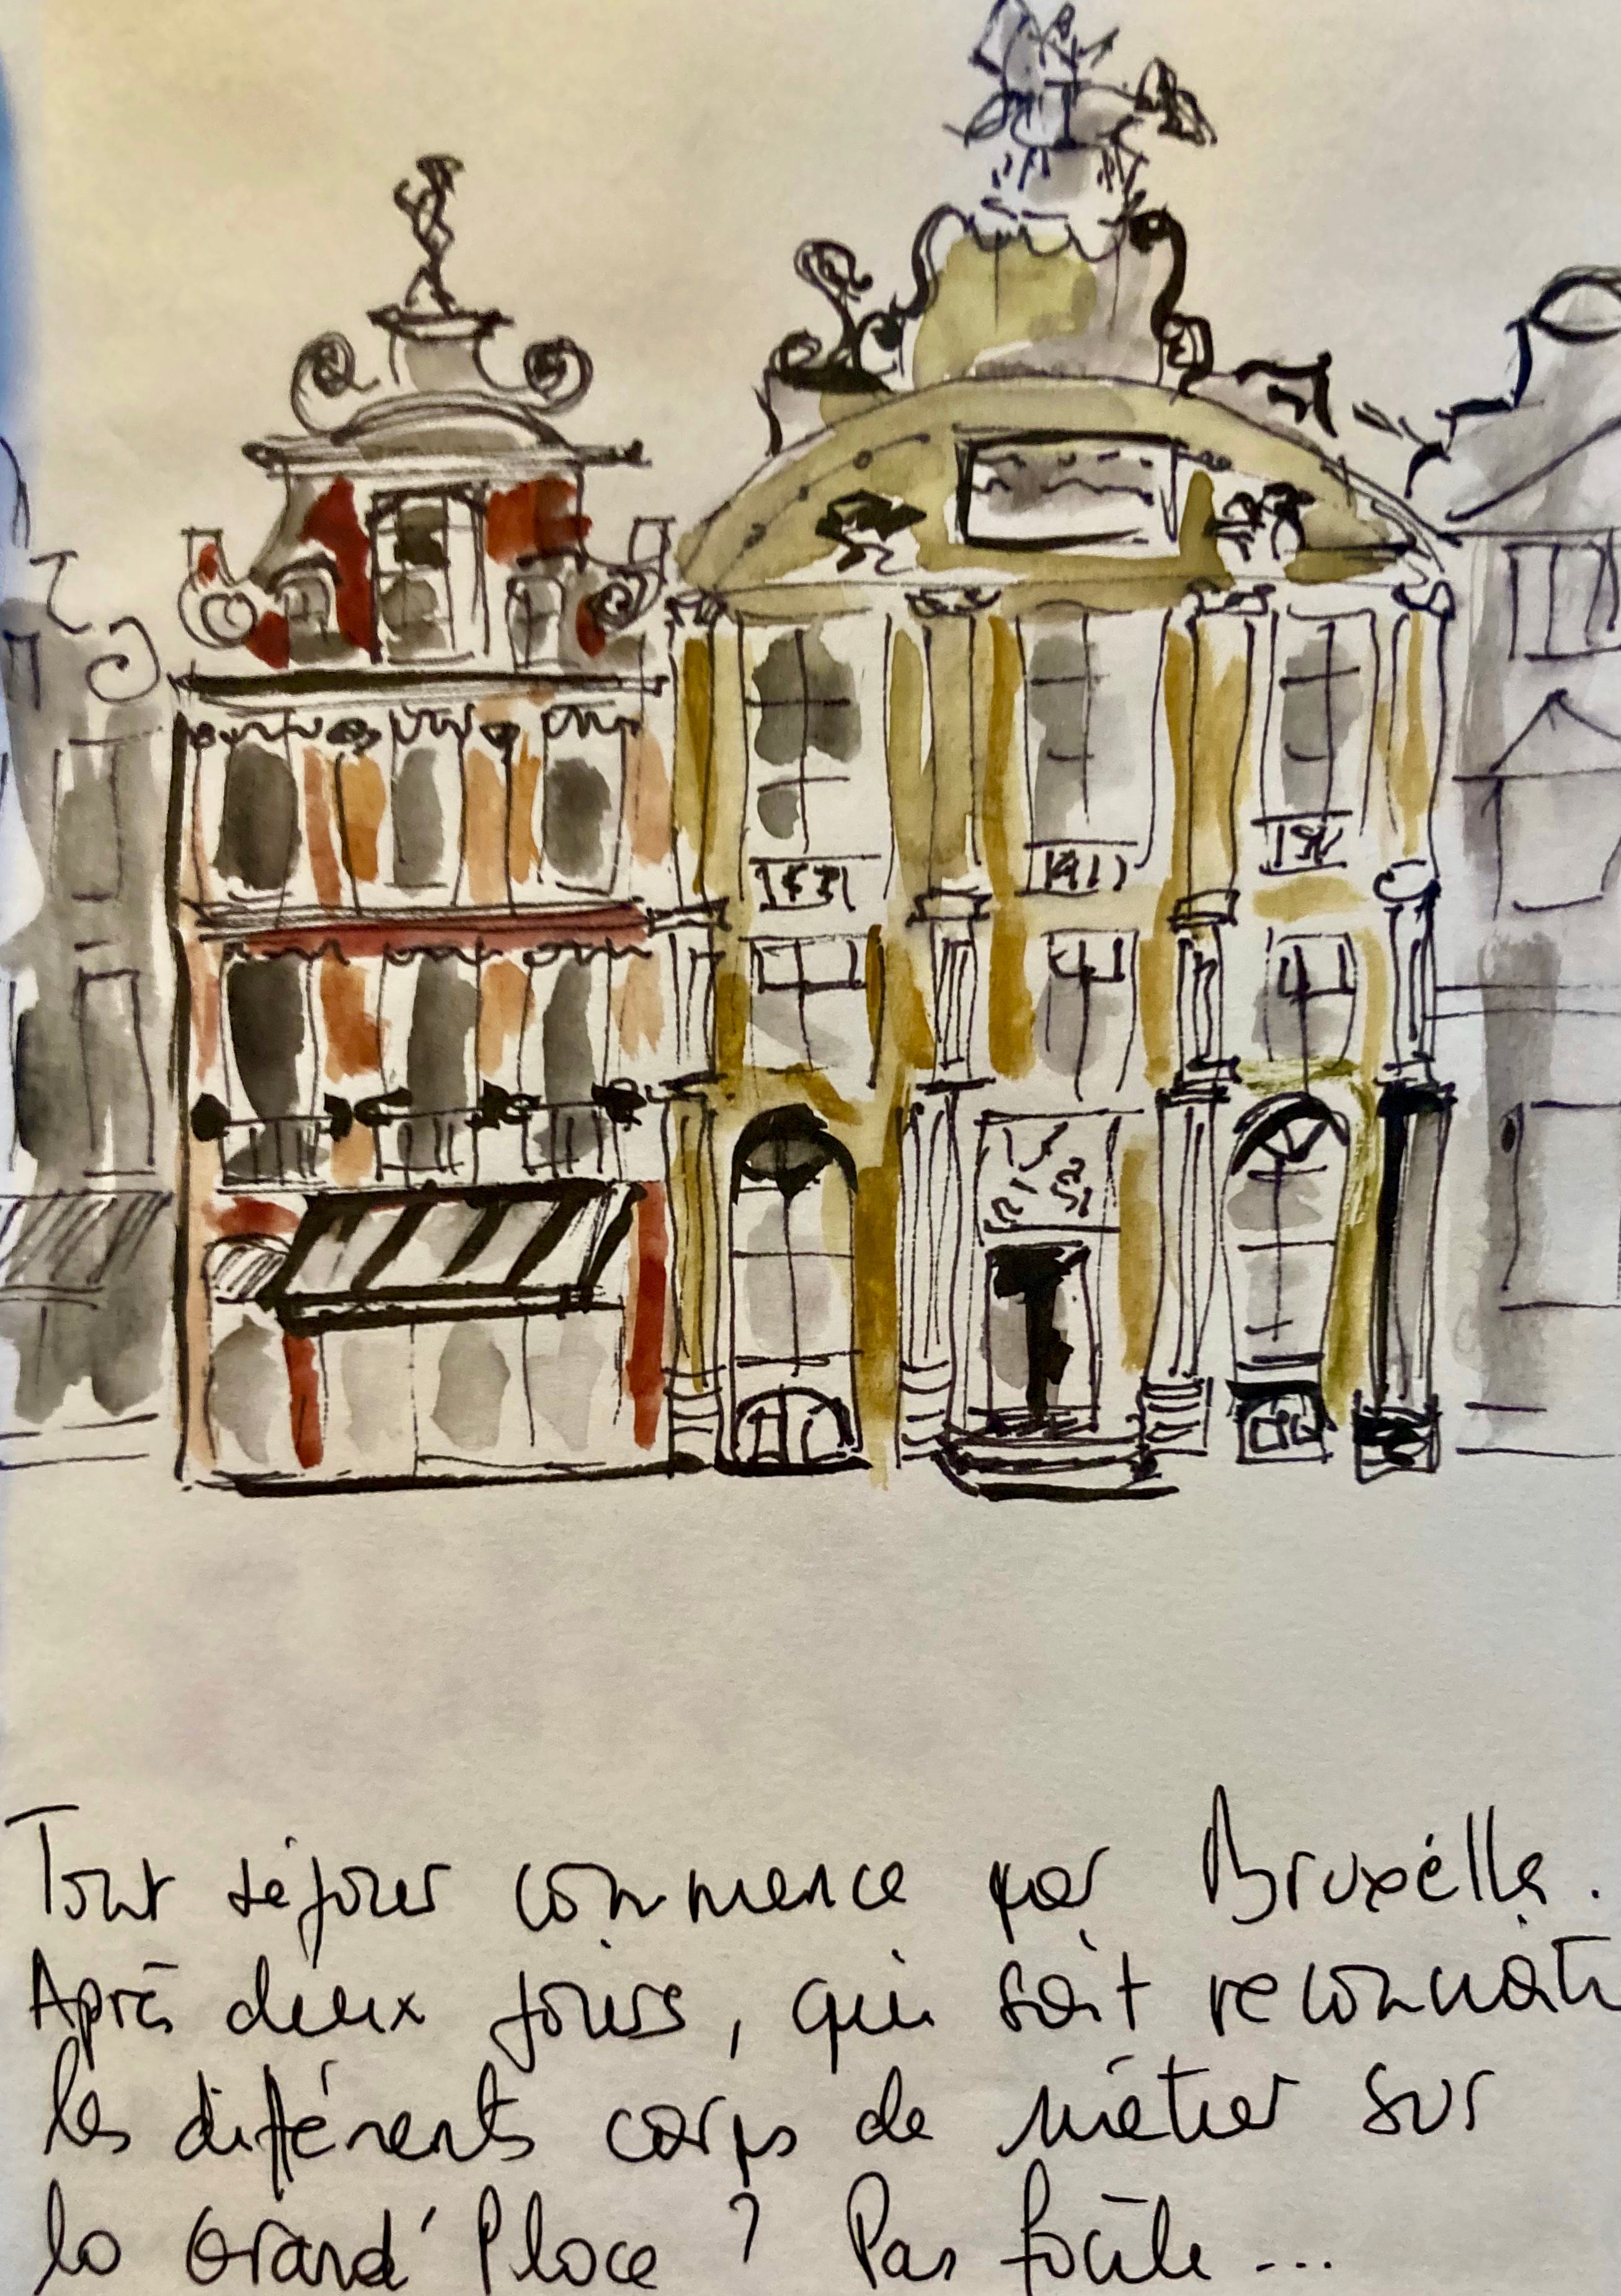 Tout séjour commence par Bruxelles.
Après deux jours, qui sait reconnaître
les différents corps de métier sur
la Grand' Place ? Pas facile ...